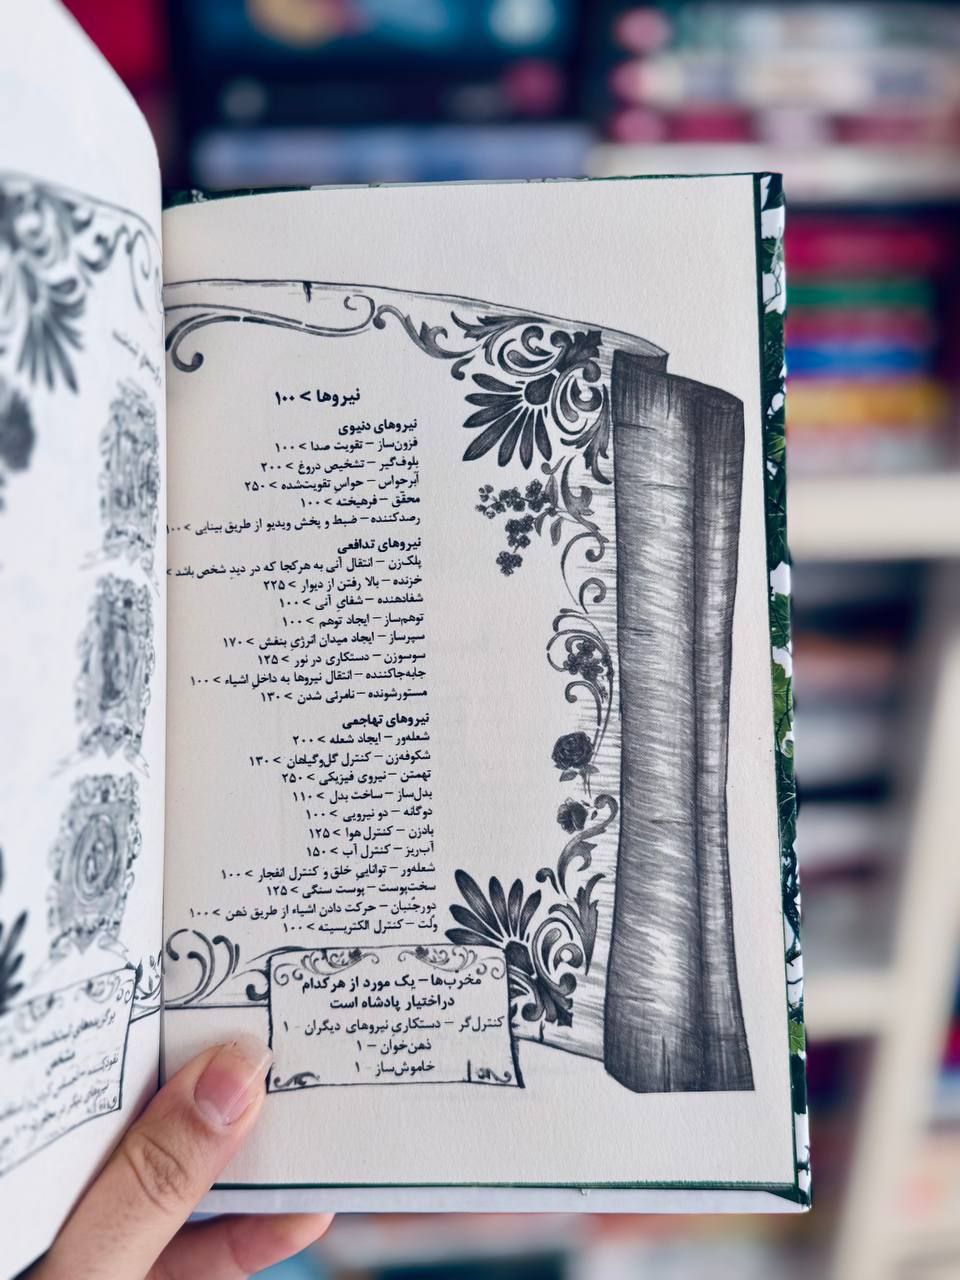 نیروها > ۱۰۰
نیروهای دنیوی
فزون‌ساز – تقویت صدا > ۱۰۰
بلوف‌گیر – تشخیص دروغ > ۲۰۰
آبَرحواس – حواسِ تقویت‌شده > ۲۵۰
محقّق – فرهیخته > ۱۰۰
رصدکننده – ضبط و پخش ویدیو از طریق بینایی > ۱۰۰
نیروهای تدافعی
پلک‌زن – انتقال آنی به هرکجا که در دیدِ شخص باشد >
خزنده – بالا رفتن از دیوار > ۲۲۵
شفادهنده – شفایِ آنی > ۱۰۰
توهم‌ساز – ایجاد توهم > ۱۰۰
سپرساز – ایجاد میدان انرژیِ بنفش > ۱۷۰
سوسوزن – دستکاری در نور > ۱۲۵
جابه‌جاکننده – انتقال نیروها به داخلِ اشیاء > ۱۰۰
مستورشونده – نامرئی شدن > ۱۳۰
نیروهای تهاجمی
شعله‌ور – ایجاد شعله > ۲۰۰
شکوفه‌زن – کنترل گل‌وگیاهان > ۱۳۰
تهمتن – نیروی فیزیکی > ۲۵۰
بدل‌ساز – ساخت بدل > ۱۱۰
دوگانه – دو نیرویی > ۱۰۰
بادزن – کنترل هوا > ۱۲۵
آب‌ریز – کنترل آب > ۱۵۰
شعله‌ور – تواناییِ خلق و کنترل انفجار > ۱۰۰
سخت‌پوست – پوست سنگی > ۱۲۵
دورجُنبان – حرکت دادن اشیاء از طریق ذهن > ۱۰۰
وُلت – کنترل الکتریسیته > ۱۰۰
مخرب‌ها – یک مورد از هرکدام
دراختیار پادشاه است
کنترل‌گر – دستکاریِ نیروهای دیگران – ۱
ذهن‌خوان – ۱
خاموش‌ساز – ۱